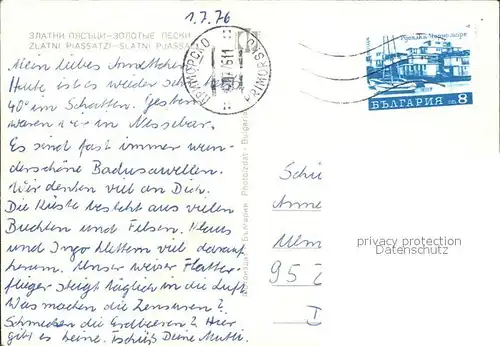 1.7.76
ЗЛАТНИ ПЯСЪЦИ-ЗОЛОТЫЕ ПЕСКИ
ZLATNI PIASSATZI-SLATNI PJASSA
Mein liebes Annettchen
Heute ist es wieder sehr
40° im Schatten. Gestern
waren wir in Nessebar.
Es sind fast immer wun-
derschöne Badewellen.
Wir denken viel an Dich.
Die Küste besteht aus vielen
Buchten und Felsen. Klaus
und Ingo klettern viel darauf
herum. Unser weißer Flatter-
flieger steigt täglich in die Luft.
Was machen die Zensuren?
Schmecken die Erdbeeren? Hier
gibt es keine. Tschüß Deine Mutti.
ПРИМОРСКО
PRIMORSKO
Photoizdat - Bulgaria
България
БЪЛГАРИЯ ст. 8
Schü
Anne
Ulm
95
privacy protection
Datenschutz